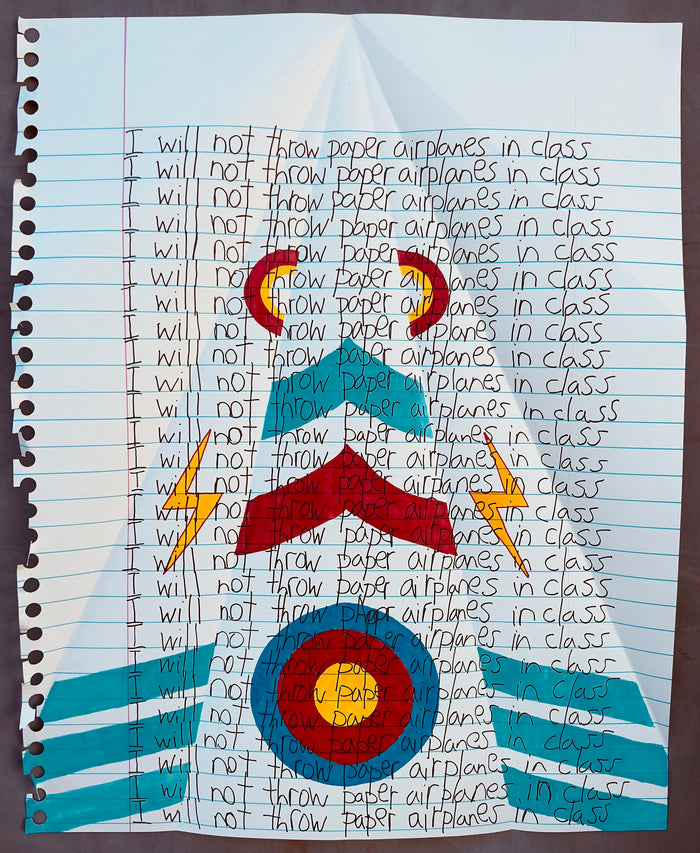 I will not throw paper airplanes in class
I will not throw paper airplanes in class
I will not throw paper airplanes in class
I will not throw paper airplanes in class
I will not throw paper airplanes in class
I will not throw paper airplanes in class
I will not throw paper airplanes in class
I will not throw paper airplanes in class
I will not throw paper airplanes in class
I will not throw paper airplanes in class
I will not throw paper airplanes in class
I will not throw paper airplanes in class
I will not throw paper airplanes in class
I will not throw paper airplanes in class
I will not throw paper airplanes in class
I will not throw paper airplanes in class
I will not throw paper airplanes in class
I will not throw paper airplanes in class
I will not throw airplanes in class
I will not throw paper airplanes in class
I will not throw paper airplanes in class
I will not throw paper airplanes in class
I will not throw paper airplanes in class
I will not throw paper airplanes in class
I will not throw paper airplanes in class
I will not throw paper airplanes in class
I will not throw paper airplanes in class